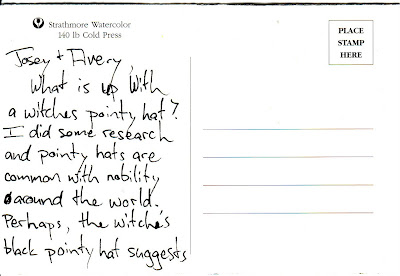 Strathmore Watercolor
140 lb Cold Press
PLACE
STAMP
HERE
Josey + Avery,
What is up with
a witches pointy hat?
I did some research
and pointy hats are
common with nobility
around the world.
Perhaps, the witche's
black pointy hat suggests